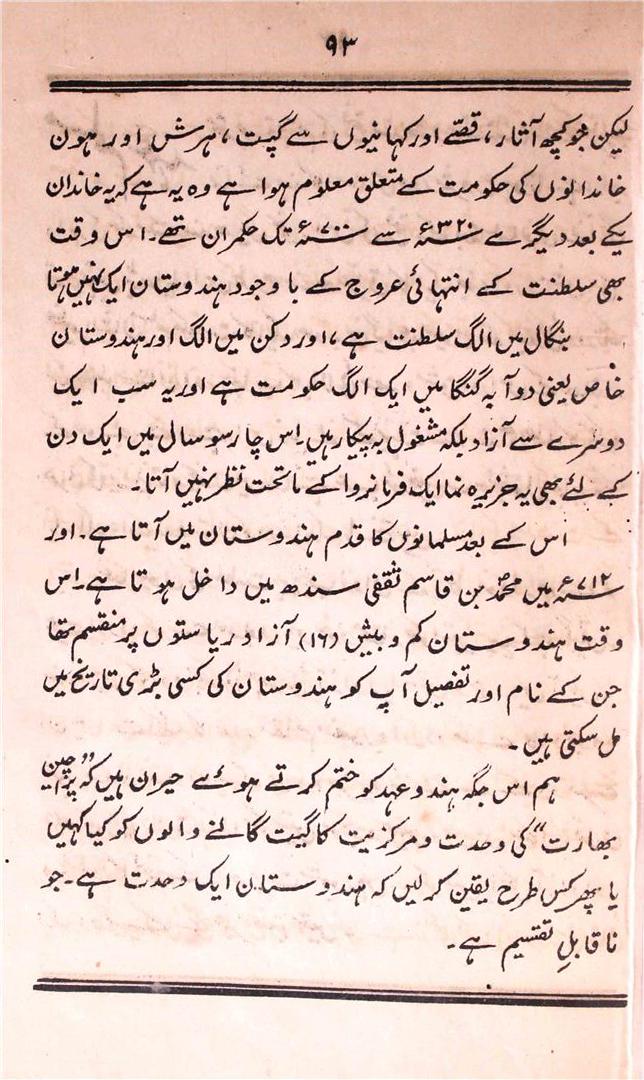 ۹۳
لیکن جو کچھ آثار، قصّے اور کہانیوں سے گپت، ہرش اور ہون
خاندانوں کی حکومت کے متعلق معلوم ہوا ہے وہ یہ ہے کہ یہ خاندان
یکے بعد دیگرے ۳۲۰ء سے ۷۰۰ء تک حکمران تھے۔ اس وقت
بھی سلطنت کے انتہائی عروج کے باوجود ہندوستان ایک نہیں ہوتا
بنگال میں الگ سلطنت ہے، اور دکن میں الگ اور ہندوستان
خاص یعنی دوآبہ گنگا میں ایک الگ حکومت ہے اور یہ سب ایک
دوسرے سے آزاد بلکہ مشغول بہ پیکار ہیں۔ اس چار سو سال میں ایک دن
کے لئے بھی یہ جزیرہ نما ایک فرمانروا کے ماتحت نظر نہیں آتا۔
اس کے بعد مسلمانوں کا قدم ہندوستان میں آتا ہے۔ اور
۷۱۲ء میں محمدؒ بن قاسم ثقفی سندھ میں داخل ہوتا ہے۔ اس
وقت ہندوستان کم و بیش (۱۶) آزاد ریاستوں پر منقسم تھا
جن کے نام اور تفصیل آپ کو ہندوستان کی کسی بڑی تاریخ میں
مل سکتی ہیں۔
ہم اس جگہ ہندو عہد کو ختم کرتے ہوئے حیران ہیں کہ "پراچین
بھارت" کی وحدت و مرکزیت کا گیت گانے والوں کو کیا کہیں
یا پھر کس طرح یقین کر لیں کہ ہندوستان ایک وحدت ہے۔ جو
ناقابلِ تقسیم ہے۔